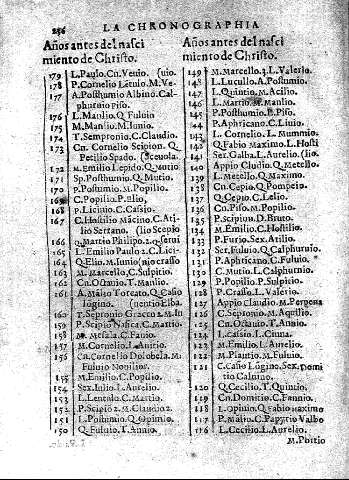 256 LA CHRONOGRAPHIA
Años antes del nasci
miento de Christo.
179 L. Paulo. Cn.
178 P. Cornelio
177 A. Posthumio Albino. Cal-
phurnio Piso.
176 L. Manlio. Q Fuluio
175 M. Manlio. M. Iunio.
174 T. Sempronio. C. Claudio.
173 Cn. Cornelio Scipion. Q
Petilio Spado. (Sceuola.
172 M. Emilio Lepido. Q Mutio
171 Sp. Posthumio. Q Mutio.
170 P. Postumio. M. Popilio.
169 C. Popilio. P. Elio,
168 P. Licinio. C. Cassio.
167 C. Hostilio Mācino. C. Ati-
lio Serrano. (lio Scepio
166 Q. Martio Philipo. 2. Q
165 L. Emilio Paulo. 2. C. Lici-
164 Q. Elio. M. Iunio
163 M. Marcello. C. Sulpitio.
162 Cn. Octauio. T. Manlio.
161 A. Malio Torcato. Q Casio
lōgino.
160 T. Sepronio Graccо. 2. M.
159 P. Scipio Nasica. C. Martio
158 M. C. Fanio.
157 M. Cornelio. L. Anitio.
156 Cn. Cornelio Dolobela. M.
Fuluio Nobilior.
155 M. Emilio. C. Popilio.
154 Sex. Iulio. L. Aurelio.
153 L. Lentulo. C. Martio.
152 P. Scipiō 2. M. Claudio 2.
151 L. Postumio. Q. Opinio.
150 Q. Fuluio. T. Annio.
Años antes del nasci
miento de Christo.
149 M. Marcello. 3. L. Valerio.
148 L. Lucullo. A. Postumio.
147 L. Quintio. M. Acilio.
146 L. Martio. M. Manlio.
145 P. Posthumio. L. Piso.
144 P. Aphricano. C. Liuio.
143 L. Cornelio. L. Mummio.
142 Q. Fabio Maximo. L. Hosti
141 Ser. Galba. L. Aurelio. (lio.
140 Appio Cludio. Q Metello.
139 L. Metello. Q Maximo.
138 Cn. Cepio. Q Pompeio.
137 Q. Cepio. C. Lelio.
136 Cn. Piso. M. Popilio.
135 P. Scipiō. D. Bruto.
134 M. Emilio. C. Hostilio.
133 P. Furio. Sex. Atilio.
132 Ser. Fuluio. Q Calphurnio.
131 P. Aphricano. C. Fuluio.
130 C. Mutio. L. Calphurnio.
129 P. Popilio. P. Sulpitio.
128 P. Crasso. L. Valerio.
127 Appio Claudio. M. Perpena
126 C. Sepronio. M. Aquilio.
125 Cn. Octauio. T. Annio.
124 L. Cassio. L. Cinna.
123 M. Emilio. L. Aurelio.
122 M. Plautio. M. Fuluio.
121 C. Casio Lōgino. Sex. Domi
tio Caluino.
120 Q. Cecilio. T. Quintio.
119 Cn. Domitio. C. Fannio.
118 L. Opinio. Q. Fabio maximo
117 P. Malio. C. Papyrio Valbo
116 L. Cecilio. L. Aurelio.
M. Portio